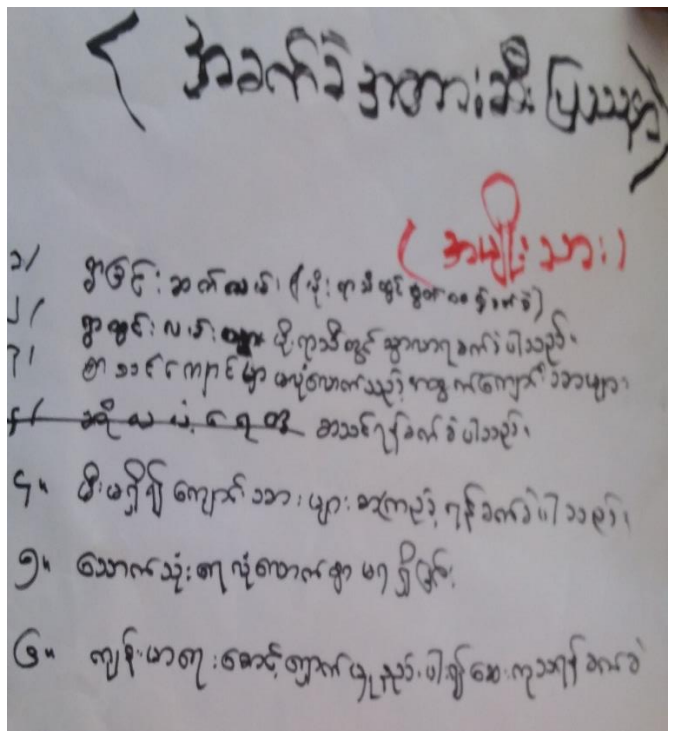 ( အခက်ခဲအတားဆီးပြဿနာ)
(အမျိုးသား)
၁/ ရွာခြင်းဆက်လမ်း (မိုးရာသီတွင်
၂/ ရွာတွင်းလမ်းများ မိုးရာသီတွင်သွားလာရခက်ခဲပါသည်။
၃/ စာသင်ကျောင်းမှာ မလုံလောက်သည့်အတွက်ကျောင်းသားများ
၄/ စာသင်ရန်ခက်ခဲပါသည်။
၄။ မီးမရှိ၍ ကျောင်းသားများစာကြည့်ရန်ခက်ခဲပါသည်။
၅။ သောက်သုံးရေလုံလောက်စွာမရရှိခြင်း
၆။ ကျန်းမာရေးစောင့်ရှောက်မှုနည်းပါး၍ဆေးကုသရန်ခက်ခဲ